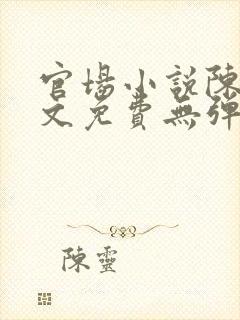 官場小說陳
文免費無彈
陳靈